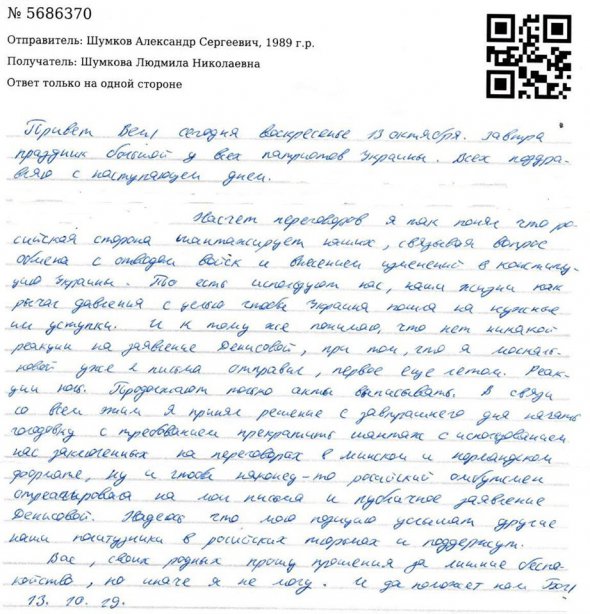 № 5686370
Отправитель: Шумков Александр Сергеевич, 1989 г.р.
Получатель: Шумкова Людмила Николаевна
Ответ только на одной стороне
Привет Всем! сегодня воскресенье 13 октября. завтра
праздник большой у всех патриотов Украины. Всех поздра-
вляю с наступающем днем.
Насчет переговоров я так понял что ро-
сийская сторона шантажирует наших, связывая вопрос
обмена с отводом войск и внесением изменений в конститу-
цию Украины. То есть используют нас, наши жизни как
рычаг давления с целью чтобы Украина пошла на нужные
им уступки. И к тому же понимаю, что нет никакой
реакции на заявление Денисовой, при том, что я москаль-
ковой уже 2 письма отправил, первое еще летом. Реак-
ции ноль. Продолжают только акты выписывать. В связи
со всем этим я принял решение с завтрашнего дня начать
голодовку с требованием прекратить шантаж с использованием
нас заключенных на переговорах в минском и нормандском
формате, ну и чтобы наконец-то российский омбутсмен
отреагировала на мои письма и публичное заявление
Денисовой. Надеюсь что мою позицию услышат другие
наши политузники в росийских тюрьмах и поддержут.
Вас, своих родных прошу прощения за лишние беспо-
койства, но иначе я не могу. И да поможет нам Бог!
13. 10. 19.